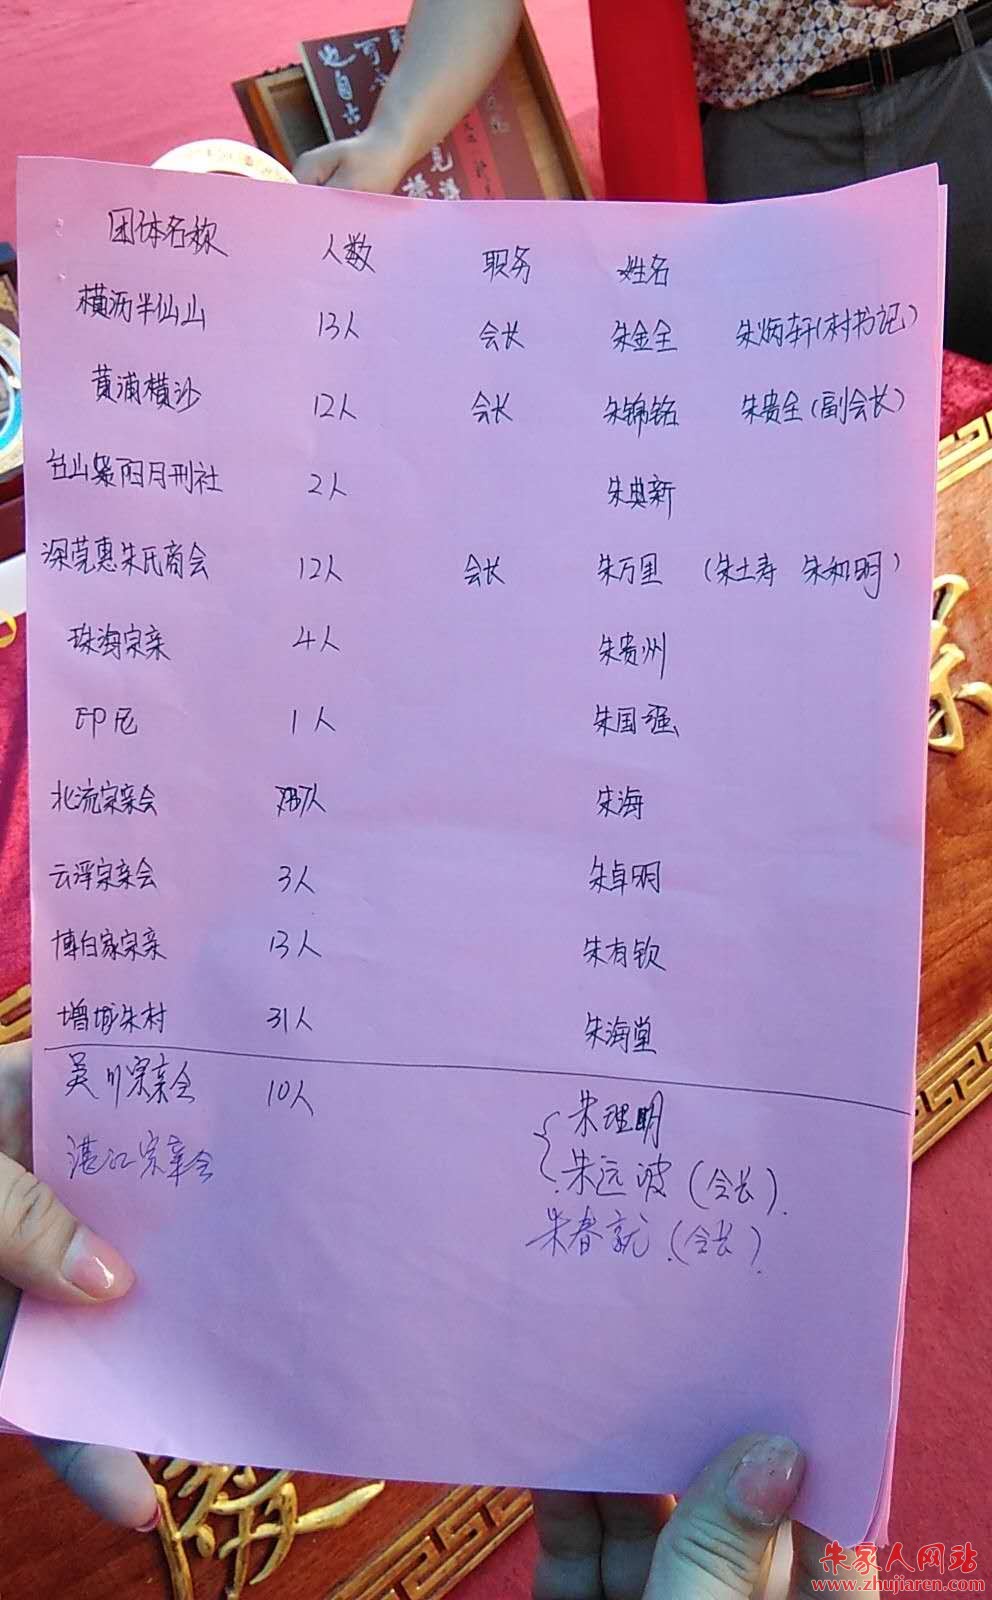 团体名称 人数 职务 姓名
横沥半仙山 13人 会长 朱金全 朱炳轩(村书记)
黄浦横沙 12人 会长 朱锦铭 朱贵全(副会长)
台山紫阳月刊社 2人 朱典新
深莞惠朱氏商会 12人 会长 朱万里 (朱土寿 朱如明)
珠海宗亲 4人 朱贵州
印尼 1人 朱国强
北流宗亲会 人 朱海
云浮宗亲会 3人 朱卓明
博白家宗亲 13人 朱有钦
增城朱村 31人 朱海堂
吴川宗亲会 10人 朱理明
朱远波(会长)
湛江宗亲会 朱春(会长)
朱家人网站
www.zhujiaren.com